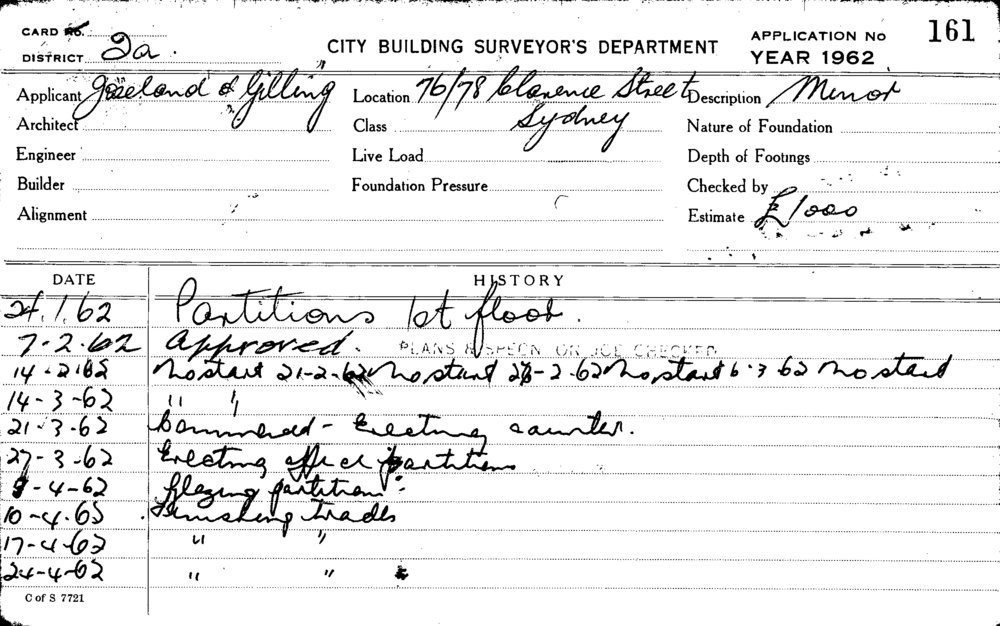 CARD No.
DISTRICT 2a.
CITY BUILDING SURVEYOR'S DEPARTMENT
APPLICATION No 161
YEAR 1962
Applicant Joseland & Gilling
Location 76/78 Clarence Street
Sydney
Description Minor
Architect
Class
Nature of Foundation
Engineer
Live Load
Depth of Footings
Builder
Foundation Pressure
Checked by
Alignment
Estimate £1000
DATE HISTORY
24.1.62 Partitions 1st floor.
7-2-62 Approved. PLANS & SPECN ON JOB CHECKED
14-2-62 No start 21-2-62 No start 28-2-62 No start 6-3-62 No start
14-3-62 " "
21-3-62 Commenced - Erecting counter.
27-3-62 Erecting office partitions
-4-62 Glazing partition
10-4-65 Finishing trades
17-4-62 " "
24-4-62 " "
C of S 7721